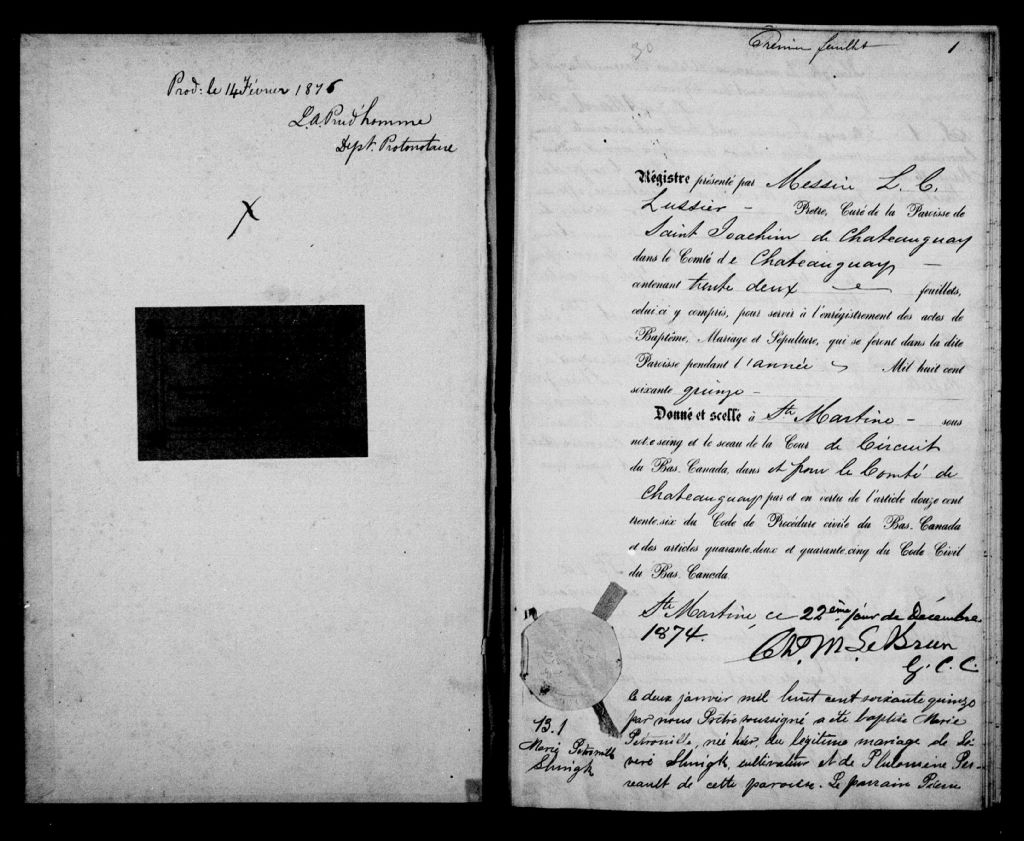 Prod: le 14 Février 1876
L. A. Prud'homme
Dept. Protonotaire
X
30
Premier feuillet
1
Régistre présenté par Messire L. C.
Lussier – Prêtre, Curé de la Paroisse de
Saint Joachim de Chateauguay
dans le Comté de Chateauguay –
contenant trente deux feuillets,
celui-ci y compris, pour servir à l'enrégistrement des actes de
Baptême, Mariage et Sépulture, qui se feront dans la dite
Paroisse pendant l'année Mil huit cent
soixante quinze –
Donné et scellé à Ste Martine – sous
notre seing et le sceau de la Cour de Circuit
du Bas-Canada, dans et pour le Comté de
Chateauguay par et en vertu de l'article douze cent
trente-six du Code de Procédure civile du Bas-Canada
et des articles quarante-deux et quarante-cinq du Code Civil
du Bas-Canada
Ste Martine, ce 22ème jour de Décembre
1874.
Chs. M. LeBrun
G. C. C.
B. 1
Marie Petronille
Shingk
Le deux janvier mil huit cent soixante quinze
par nous Prêtre soussigné a été baptisée Marie
Petronille, née hier, du légitime mariage de
Shingk, cultivateur et de Philomène Per-
reault de cette paroisse. Le parrain